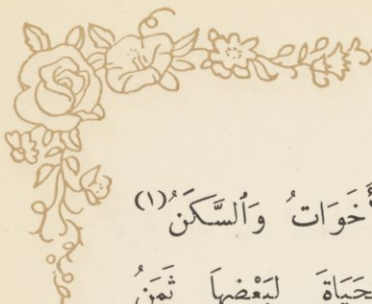 أَخَوَاتُ وَالسَّكَنُ(١)
حَيَاةَ لِبَعْضِهَا ثَمَنُ